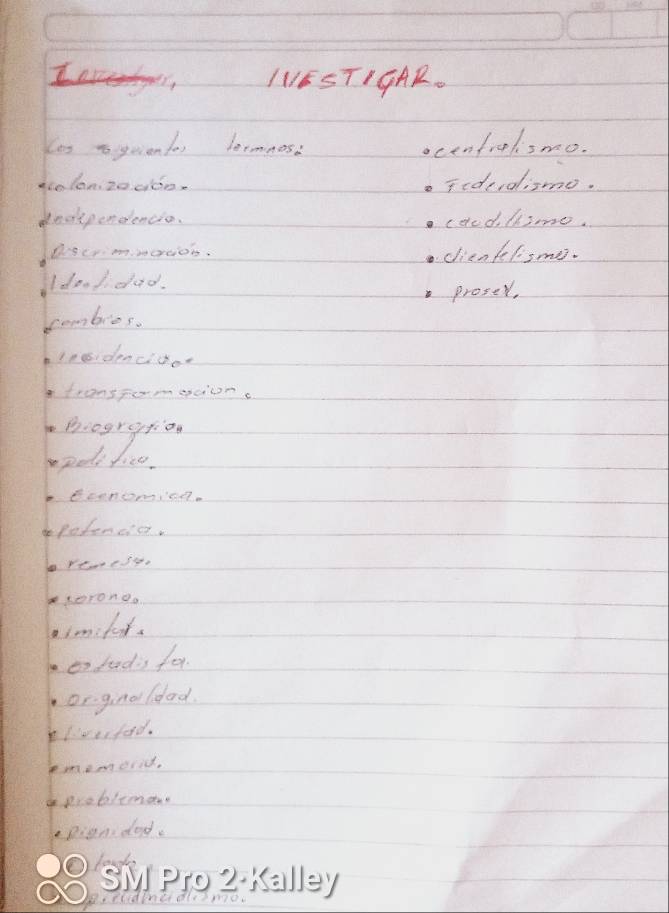 IVESTIGAR.
Los siguientes terminos:
• colonización.
• Independencia.
• Discriminación.
• Identidad.
• cambios.
• transformacion.
• Biografia
• politica.
• Economica.
• Potencia.
• remesa.
• corona.
• imitar.
• estadista.
• originaldad.
• livertad.
• memoria.
• problema.
• Dignidad.
• centralismo.
• Federalismo.
• caudillismo.
• clientelismo.
SM Pro 2·Kalley